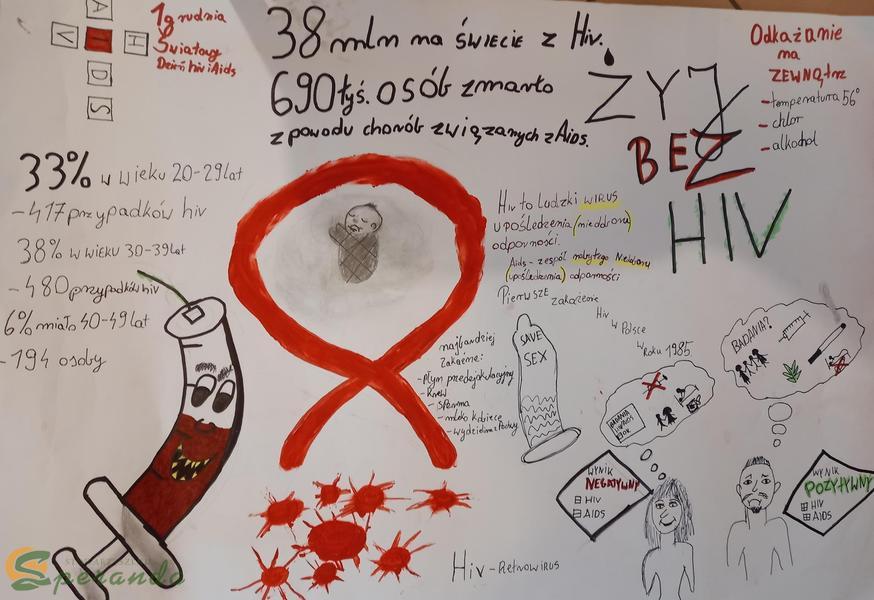 A
V I H
D
S
1 grudnia
Światowy
Dzień hiv i Aids
38 mln na świecie z Hiv.
690 tyś. osób zmarło
z powodu chorób związanych z Aids.
ŻYJ
BEZ
HIV
Odkażanie
na
ZEWNĄtrz
- temperatura 56°
- chlor
- alkohol
33% w wieku 20-29 lat
- 417 przypadków hiv
38% w wieku 30-39 lat
- 480 przypadków hiv
6% miało 40-49 lat
- 194 osoby
Hiv to ludzki wirus
upośledzenia (niedoboru)
odporności.
Aids - zespół nabytego Niedoboru
(upośledzenia) odporności
Pierwsze zakażenie
Hiv
w Polsce
w Roku 1985.
najbardziej
zakaźne:
- płyn przedejakulacyjny
- Krew
- sperma
- mleko kobiece
- wydzielina z Pochwy
SAVE
SEX
BADANIA
BADANIA?
WYNIK
NEGATYWNY
HIV
AIDS
WYNIK
POZYTYWNY
HIV
AIDS
Hiv - Retrowirus
Speranda